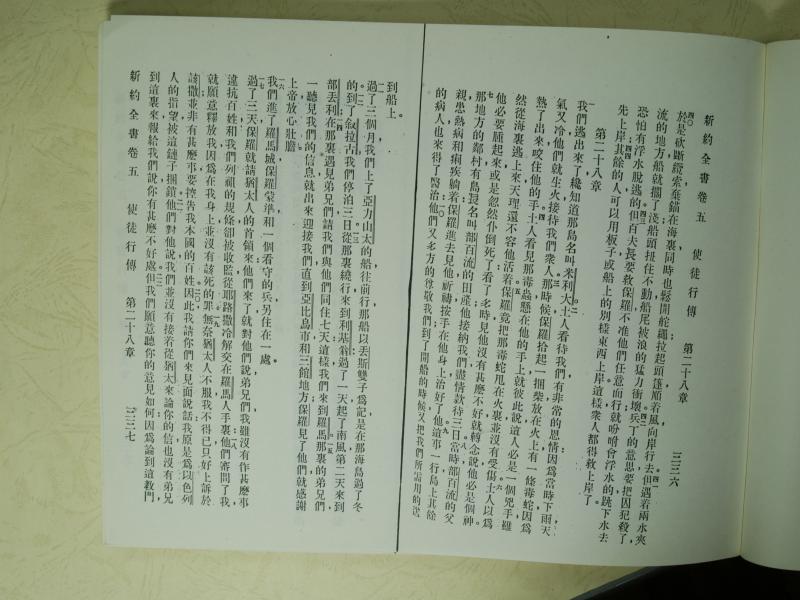 新約全書卷五　使徒行傳　第二十八章　三三六
於是砍斷纜索棄錨在海裏同時也鬆開舵繩拉起頭篷順着風向岸行去但遇着兩水夾
流的地方船就擱了淺船頭扭住不動船尾被浪的猛力衝壞兵丁的意思要把囚犯殺了
恐怕有浮水脫逃的但百夫長要救保羅不准他們任意而行就吩咐會浮水的跳下水去
先上岸其餘的人可以用板子或船上的別樣東西上岸這樣衆人都得救上岸了
第二十八章
我們逃出來了纔知道那島名叫米利大土人看待我們有非常的恩情因爲當時下雨天
氣又冷他們就生火接待我們衆人那時候保羅拾起一捆柴放在火上有一條毒蛇因爲
熱了出來咬住他的手土人看見那毒蟲懸在他的手上就彼此說這人必是一個兇手雖
然從海裏逃上來天理還不容他活着保羅竟把那毒蛇甩在火裏並沒有受傷土人以爲
他必要腫起來或是忽然仆倒死了看了多時見他沒有甚麼不好就轉念說他必是個神
那地方的鄰村有島長名叫部百流的田產他接納我們盡情款待三日當時部百流的父
親患熱病和痢疾躺着保羅進去見他祈禱按手在他身上治好了他這事一行島上其餘
的病人也來得了醫治他們又多方的尊敬我們到了開船的時候又把我們所需用的送
到船上。
過了三個月我們上了亞力山太的船往前行那船以丟斯雙子爲記是在那海島過了冬
的到了叙拉古我們停泊三日從那裏繞行來到利基翁過了一天起了南風第二天來到
部丟利在那裏遇見弟兄們請我們與他們同住七天這樣我們來到羅馬那裏的弟兄們
一聽見我們的信息就出來迎接我們直到亞比烏市和三館地方保羅見了他們就感謝
上帝放心壯膽
我們進了羅馬城保羅蒙準和一個看守的兵另住在一處。
過了三天保羅就請猶太人的首領來他們來了就對他們說弟兄們我雖沒有作甚麼事
違抗百姓和我們列祖的規條卻被收監從耶路撒冷解交在羅馬人手裏他們審問了我
就願意釋放我因爲在我身上並沒有該死的罪無奈猶太人不服我不得已只好上訴於
該撒並非有甚麼事要控告我本國的百姓因此我請你們來見面說話我原是爲以色列
人的指望被這鏈子捆鎖他們對他說我們並沒有接着從猶太來論你的信也沒有弟兄
到這裏來報給我們說你有甚麼不好處但我們願意聽你的意見如何因爲論到這教門
新約全書卷五　使徒行傳　第二十八章　三三七